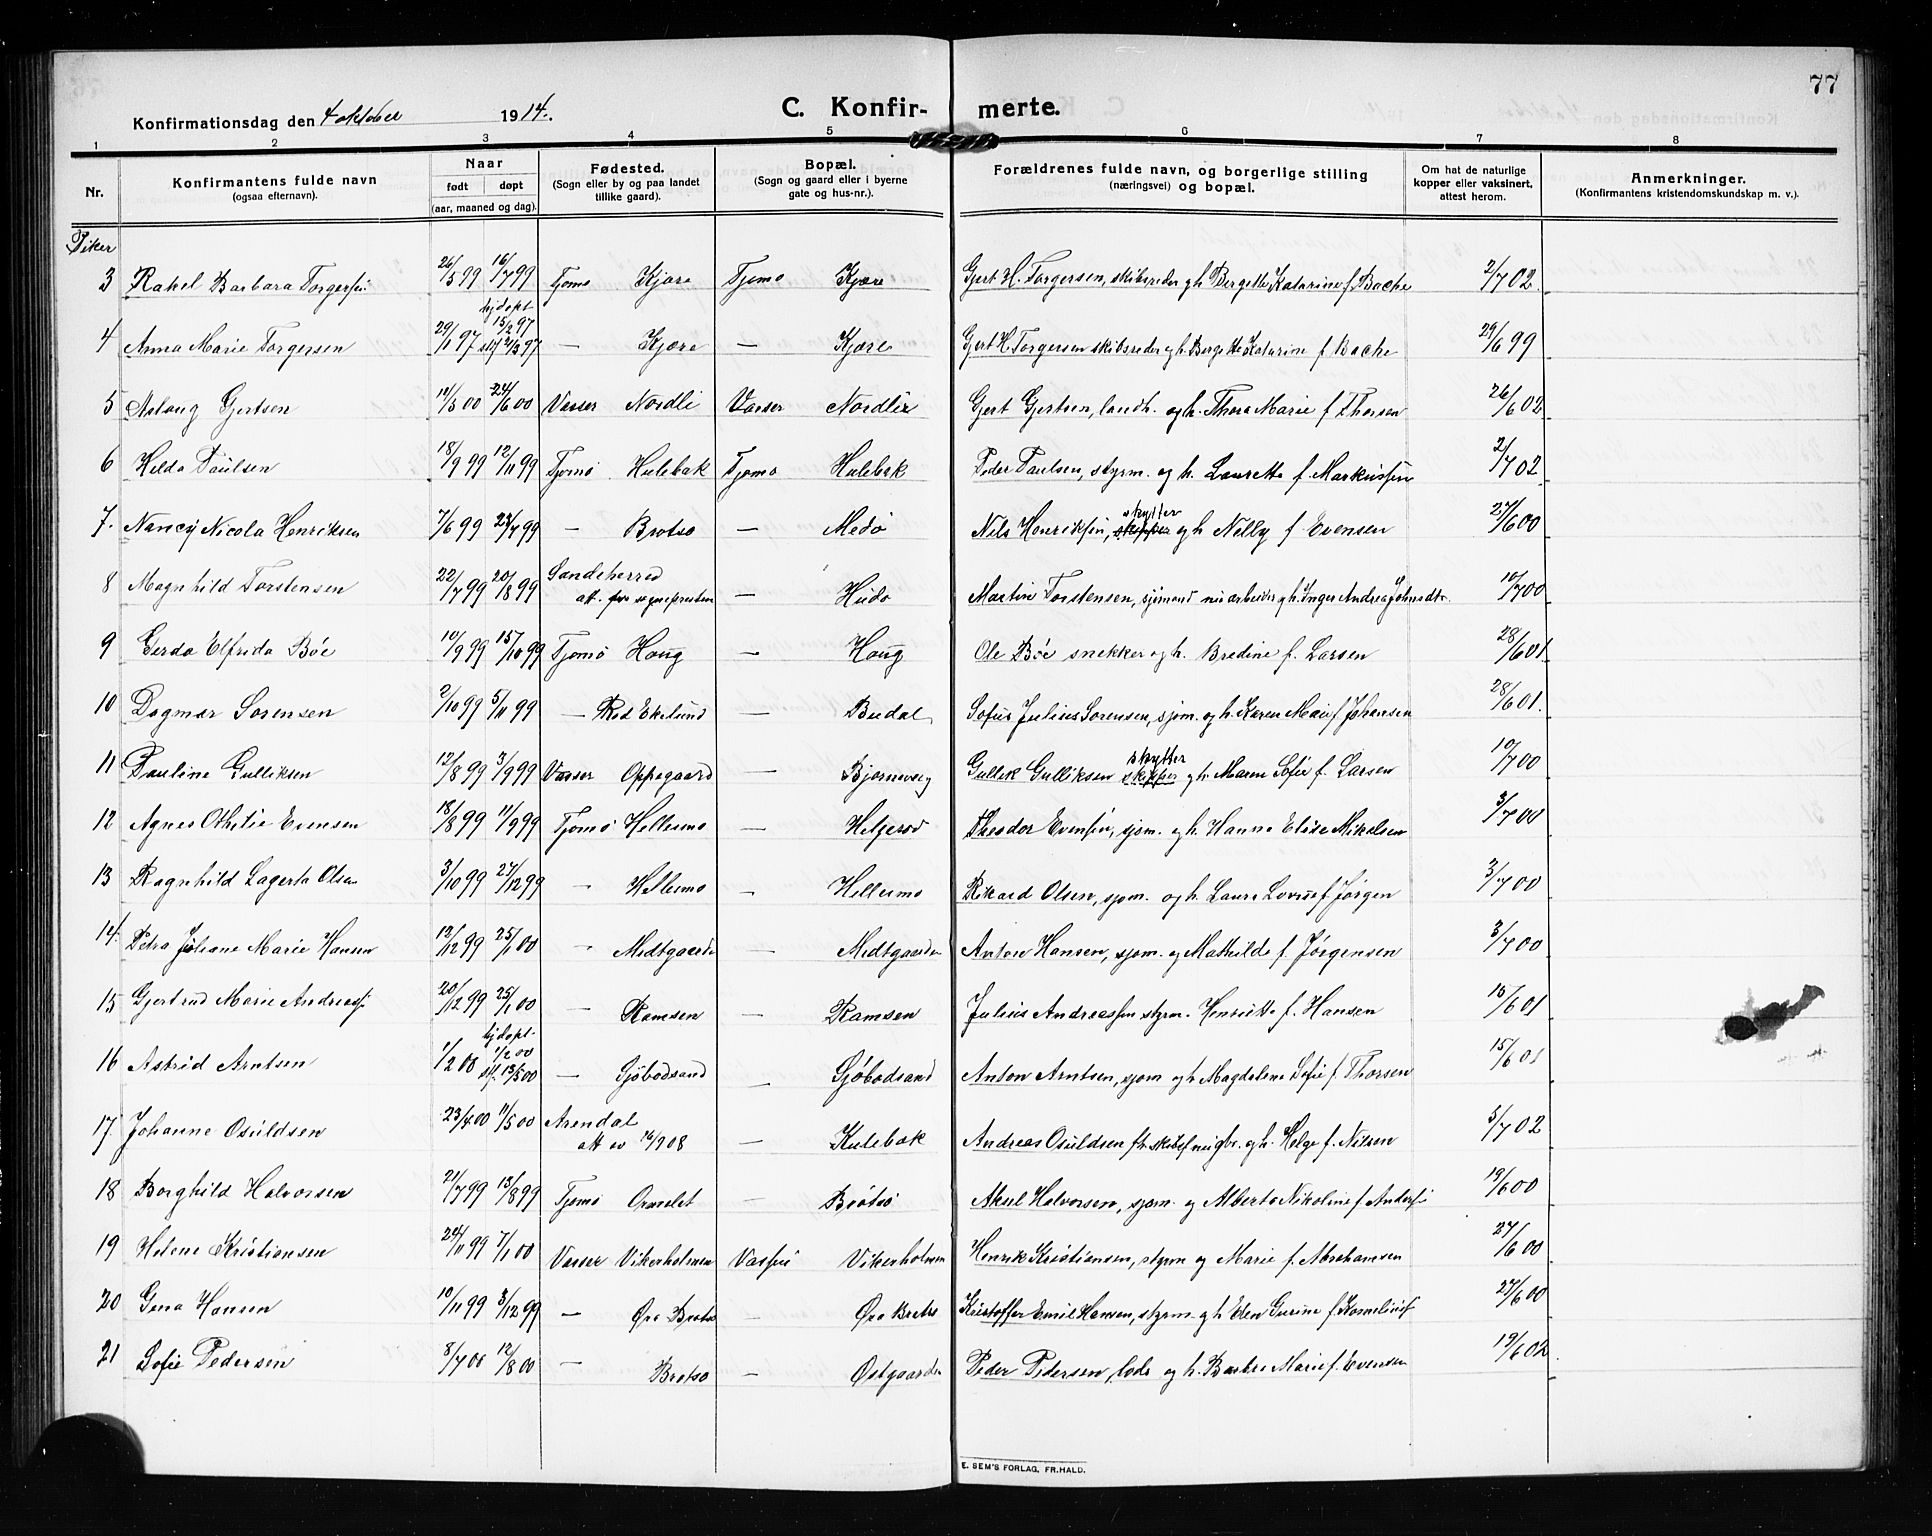 77
Konfirmationsdag den 4 oktober 1914. C. Konfir- merte.
1 2 3 4 5 6 7 8
Nr. Konfirmantens fulde navn (ogsaa efternavn). Naar født døpt (aar, maaned og dag). Fødested. (Sogn eller by og paa landet tillike gaard). Bopæl. (Sogn og gaard eller i byerne gate og hus-nr.). Forældrenes fulde navn, og borgerlige stilling (næringsvei) og bopæl. Om hat de naturlige kopper eller vaksinert, attest herom. Anmerkninger. (Konfirmantens kristendomskundskap m. v.).
Piker
3 Rakel Barbara Torgersen 26/5 99 16/7 99 Tjømø Kjøre Tjomo Kjøre Gert H. Torgersen, skibsreder og h. Bergette Katarine f. Bache 2/7 02.
4 Anna Marie Torgersen 29/1 97 hjdøpt 15/2 97 stf 21/3 97 — Kjøre — Kjøre Gert H Torgersen skibsreder og h. Bergette Katarine f. Bache 29/6 99
5 Aslaug Gjertsen 11/5 00 24/6 00 Vasser Nordli Vasser Nordli Gert Gjertsen, landh. og h. Thora Marie f Thorsen 26/6 02
6 Hilda Paulsen 18/9 99 12/11 99 Tjømø Hulebak Tjomo Hulebak Peder Paulsen, styrm. og h. Laurette f. Markussen 2/7 02
7. Nancy Nicola Henriksen 7/6 99 23/7 99 — Brotsø — Medø Nils Henriksen, skipper skytter og h Nelly f Evensen 27/6 00
8 Magnhild Torstensen 22/7 99 20/8 99 Sandeherred att. fra sognepresten — Hudø Martin Torstensen, sjømand nu arbeider og h. Inger Andrea Johnsdtr. 10/7 00
9 Gerda Elfrida Bøe 10/9 99 15/10 99 Tjømø Haug — Haug Ole Bøe snekker og h. Bredine f. Larsen 28/6 01.
10 Dagmar Sørensen 2/10 99 5/11 99 — Rød Ekelund — Budal Sofus Julius Sørensen, sjøm. og h. Karen Marie f Johansen 28/6 01.
11 Pauline Gulliksen 12/8 99 3/9 99 Vasser Oppegaard — Bjørneveg Gullik Gulliksen skipper skytter og h. Maren Sofie f. Larsen 10/7 00
12 Agnes Othilie Evensen 18/8 99 11/9 99 Tjømø Hellesmo — Helgerød Theodor Evensen, sjøm. og h. Hanna Elise Mikalsen 3/7 00
13 Ragnhild Lagerta Olsen 3/10 99 27/12 99 — Hellesmo — Hellesmo Rikard Olsen, sjøm. og h. Laura Lovise f Jørgen 3/7 00
14. Petra Juliane Marie Hansen 12/12 99 25/1 00 — Midtgaarde — Midtgaarden Anton Hansen, sjøm. og Mathilde f. Jørgensen 3/7 00
15 Gjertrud Marie Andreass. 20/12 99 25/1 00 — Ramsen Ramsen Julius Andreassen styrm. Henriette f. Hansen 15/6 01
16 Astrid Arntsen 1/2 00 hjdøpt 1/2 00 stf. 13/5 00 — Gjøbodsand — Gjøbodsand Anton Arntsen, sjøm og h Magdalene Sofie f. Thorsen 15/6 01
17. Johanne Osuldsen 23/4 00 11/5 00 Arendal att av 16/9 08 — Hulebak Andreas Osuldsen og h. Helga f. Nilsen 5/7 02
18 Borghild Halvorsen 21/7 99 13/8 99 Tjømø — Brøtsø Aksel Halvorsen, sjøm. og Alberta Nikoline f Anders. 19/6 00
19 Helene Kristiansen 24/11 99 7/1 00 Vasser Vikerholmen Vasser Vikerholmen Henrik Kristiansen, styrm og Marie f. Abrahamsen 27/6 00
20 Gina Hansen 10/11 99 3/12 99 — Øra Brøtsø — Øra Brøtsø Kristoffer Emil Hansen, styrm. og h Elen Gurine f Kornelius. 27/6 00
21 Sofie Pedersen 8/7 00 12/8 00 — Brøtsø — Østgaarden Peder Pedersen, lods og h. Barbra Marie f. Evensen 19/6 02
E. SEM'S FORLAG, FR.HALD.